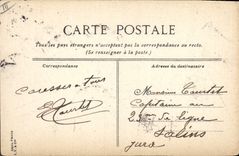 CARTE POSTALE
Tous les pays étrangers n'acceptent pas la correspondance au recto.
(Se renseigner à la poste.)
Correspondance
Adresse du destinataire
Caresses à tous
Monsieur Courtet
Capitaine au
de ligne
Salins
Jura